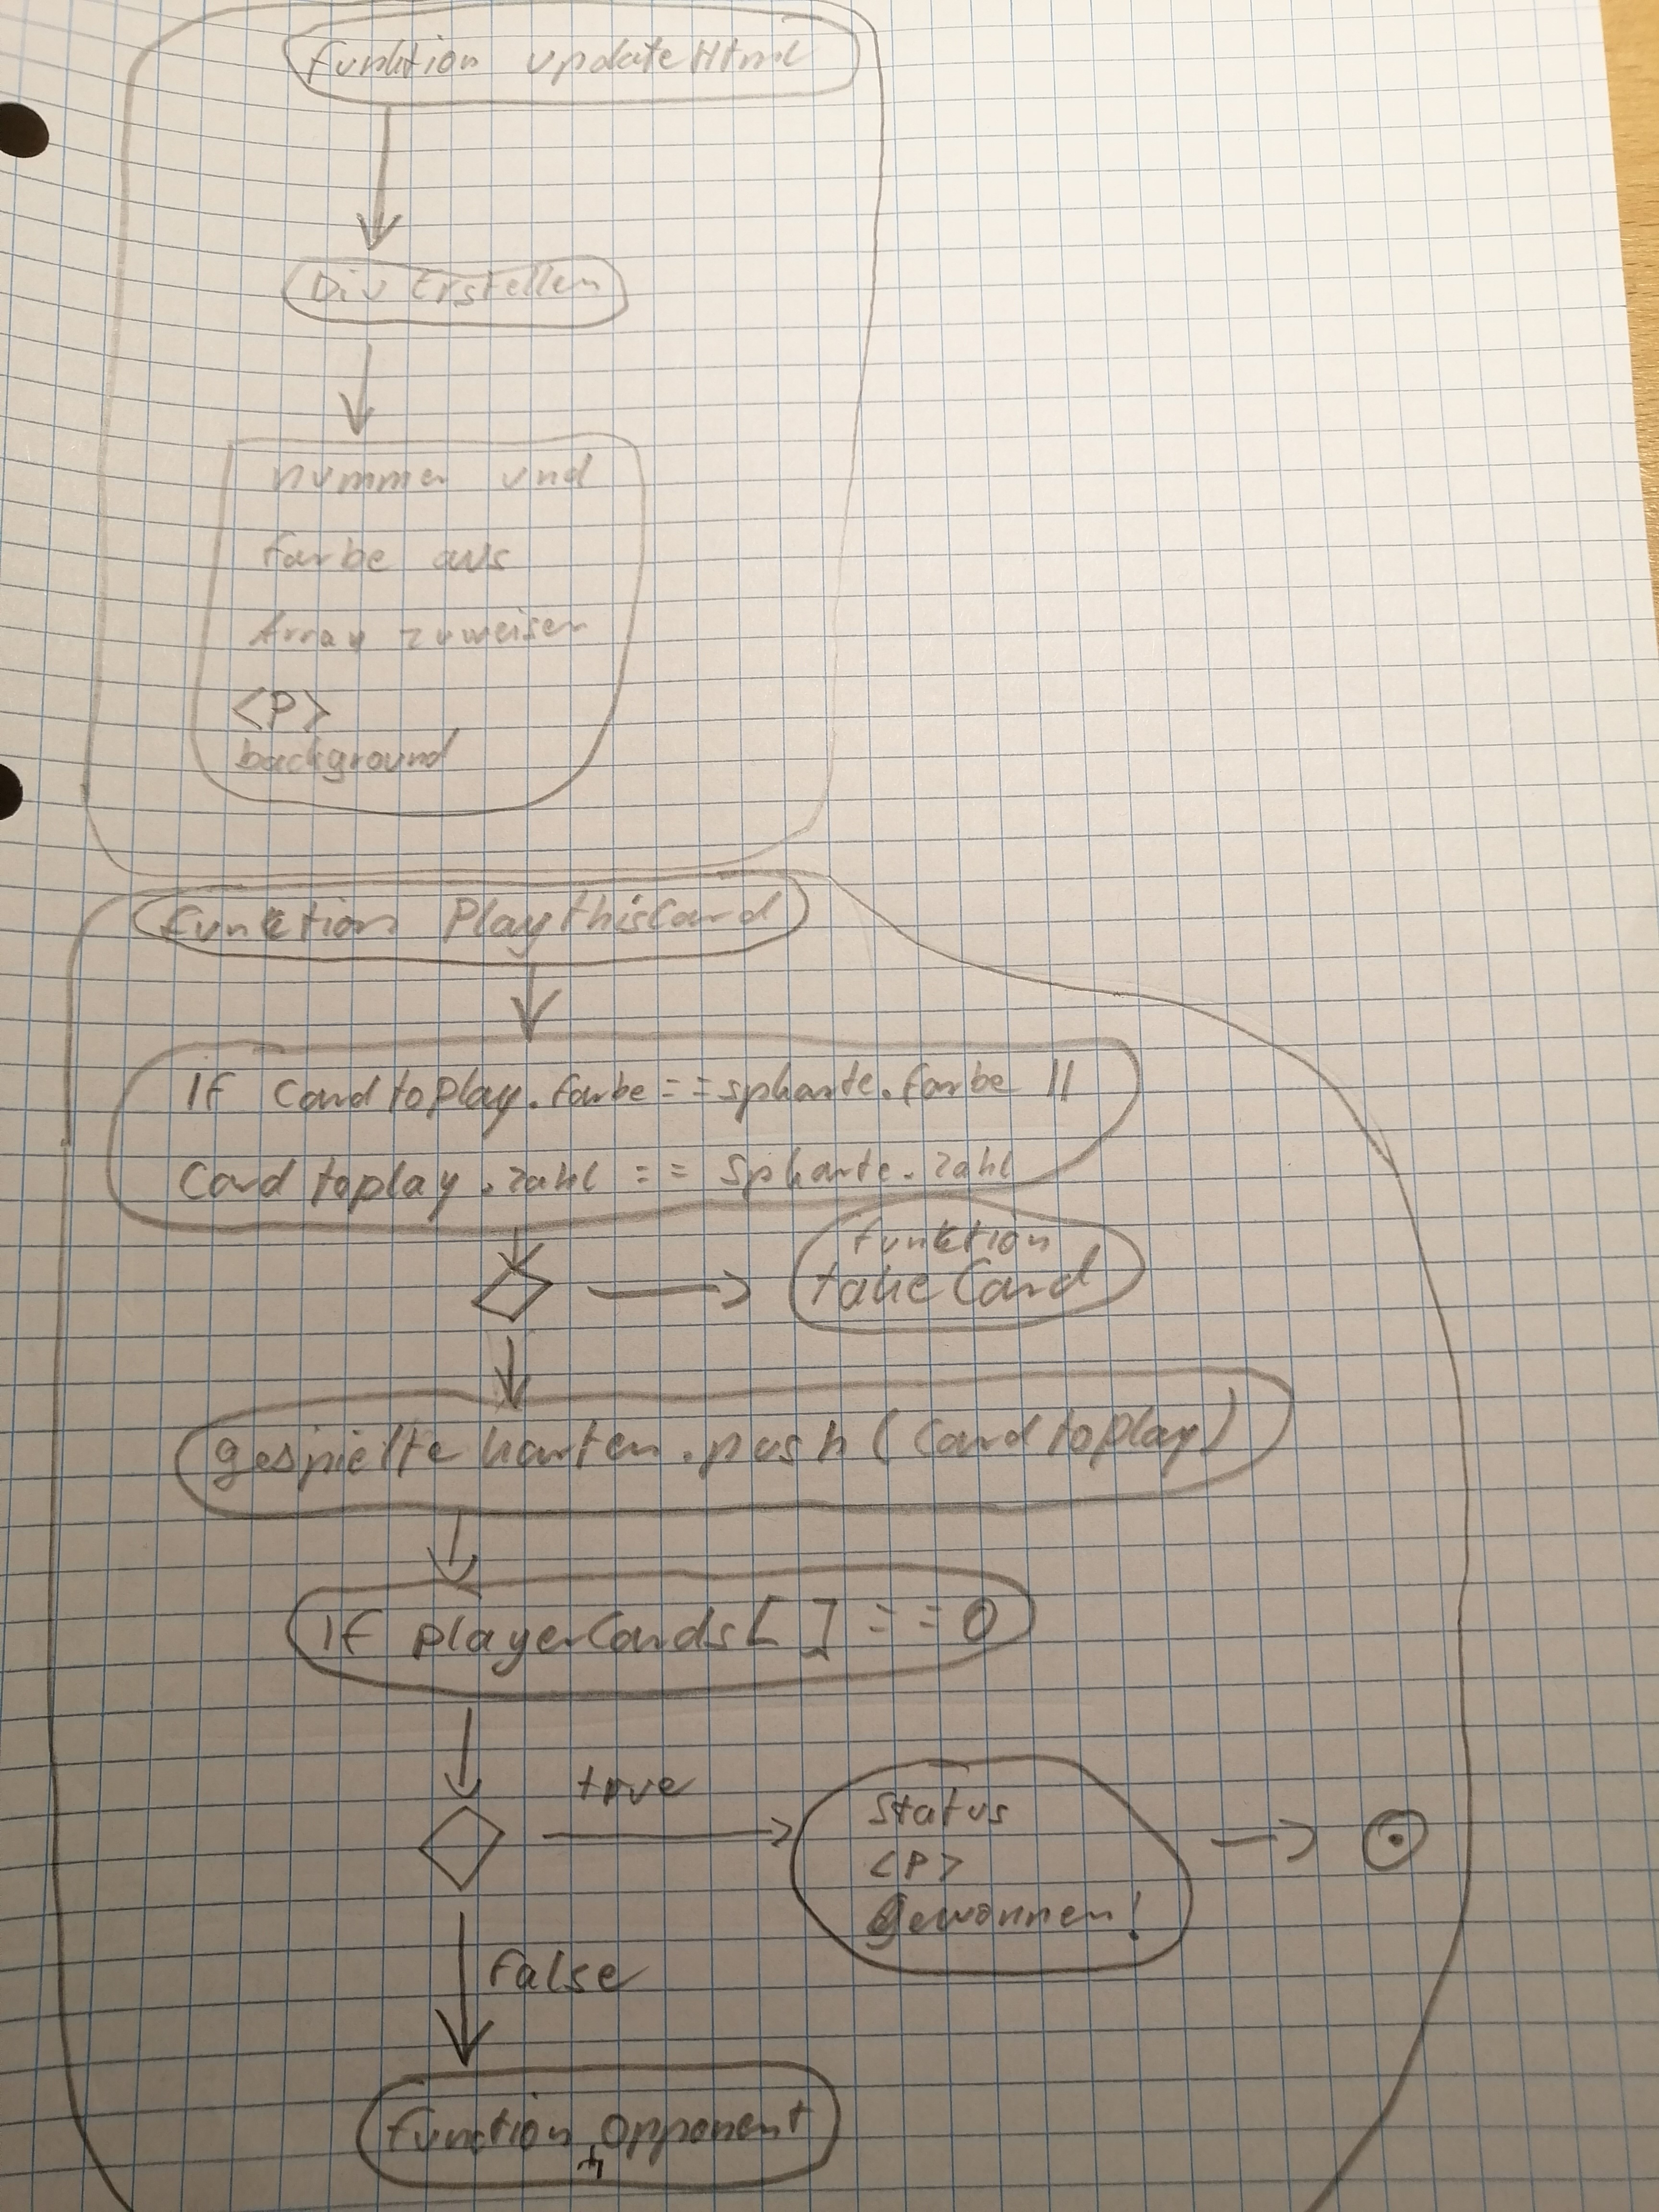 Funktion updateHtml
Div Erstellen
nummer und
farbe aus
Array zuweisen
<P>
background
Funktion PlaythisCard
If Cardtoplay.farbe == spkarte.farbe ||
Cardtoplay.zahl == Spkarte.zahl
Funktion
takeCard
gespielte karten.push(Cardtoplay)
If playerCards[ ] == 0
true
Status
<P>
Gewonnen!
False
Function opponent